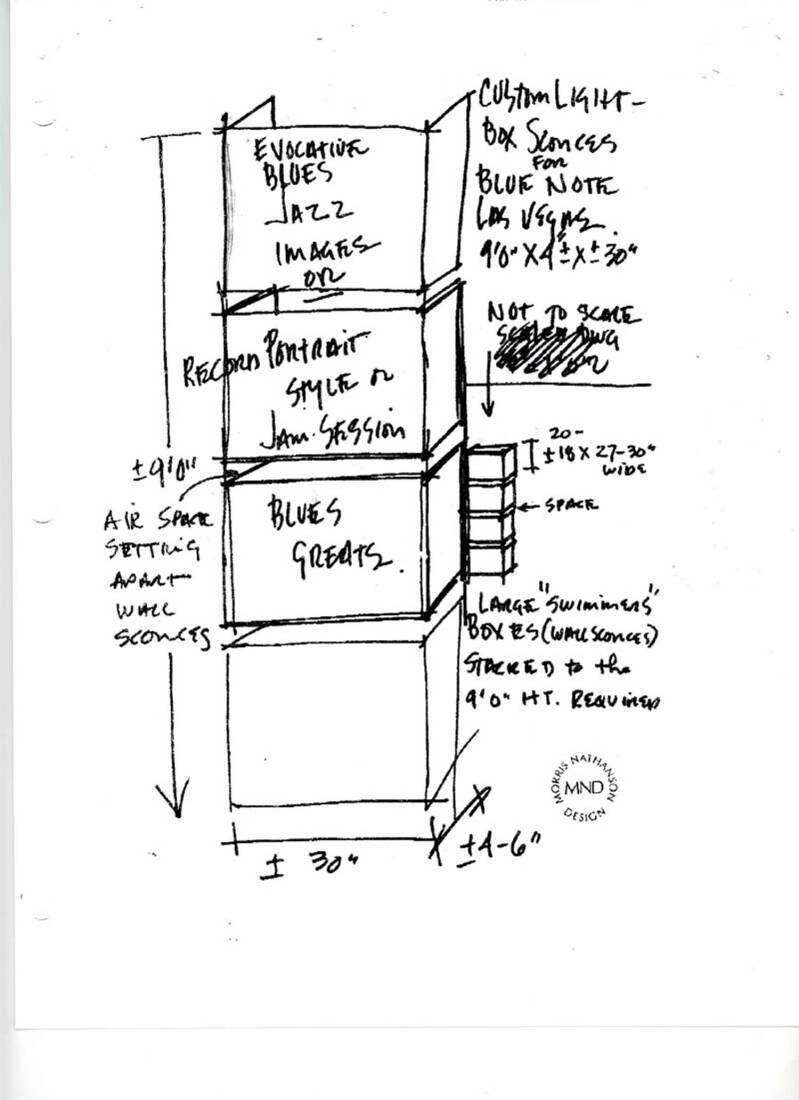 CUSTOM LIGHT-
BOX SCONCES
FOR
BLUE NOTE
LAS VEGAS.
9'0" X 4"± X ± 30"
EVOCATIVE
BLUES
JAZZ
IMAGES
OR
NOT TO SCALE
RECORD PORTRAIT
STYLE OR
JAM. SESSION
20-
±18 X 27-30"
WIDE
SPACE
±9'0"
AIR SPACE
SETTING
APART
WALL
SCONCES
BLUES
GREATS.
LARGE "SWIMMERS"
BOXES (WALL SCONCES)
STACKED to the
9'0" HT. REQUIRED
MORRIS NATHANSON
MND
DESIGN
± 30"
±4-6"